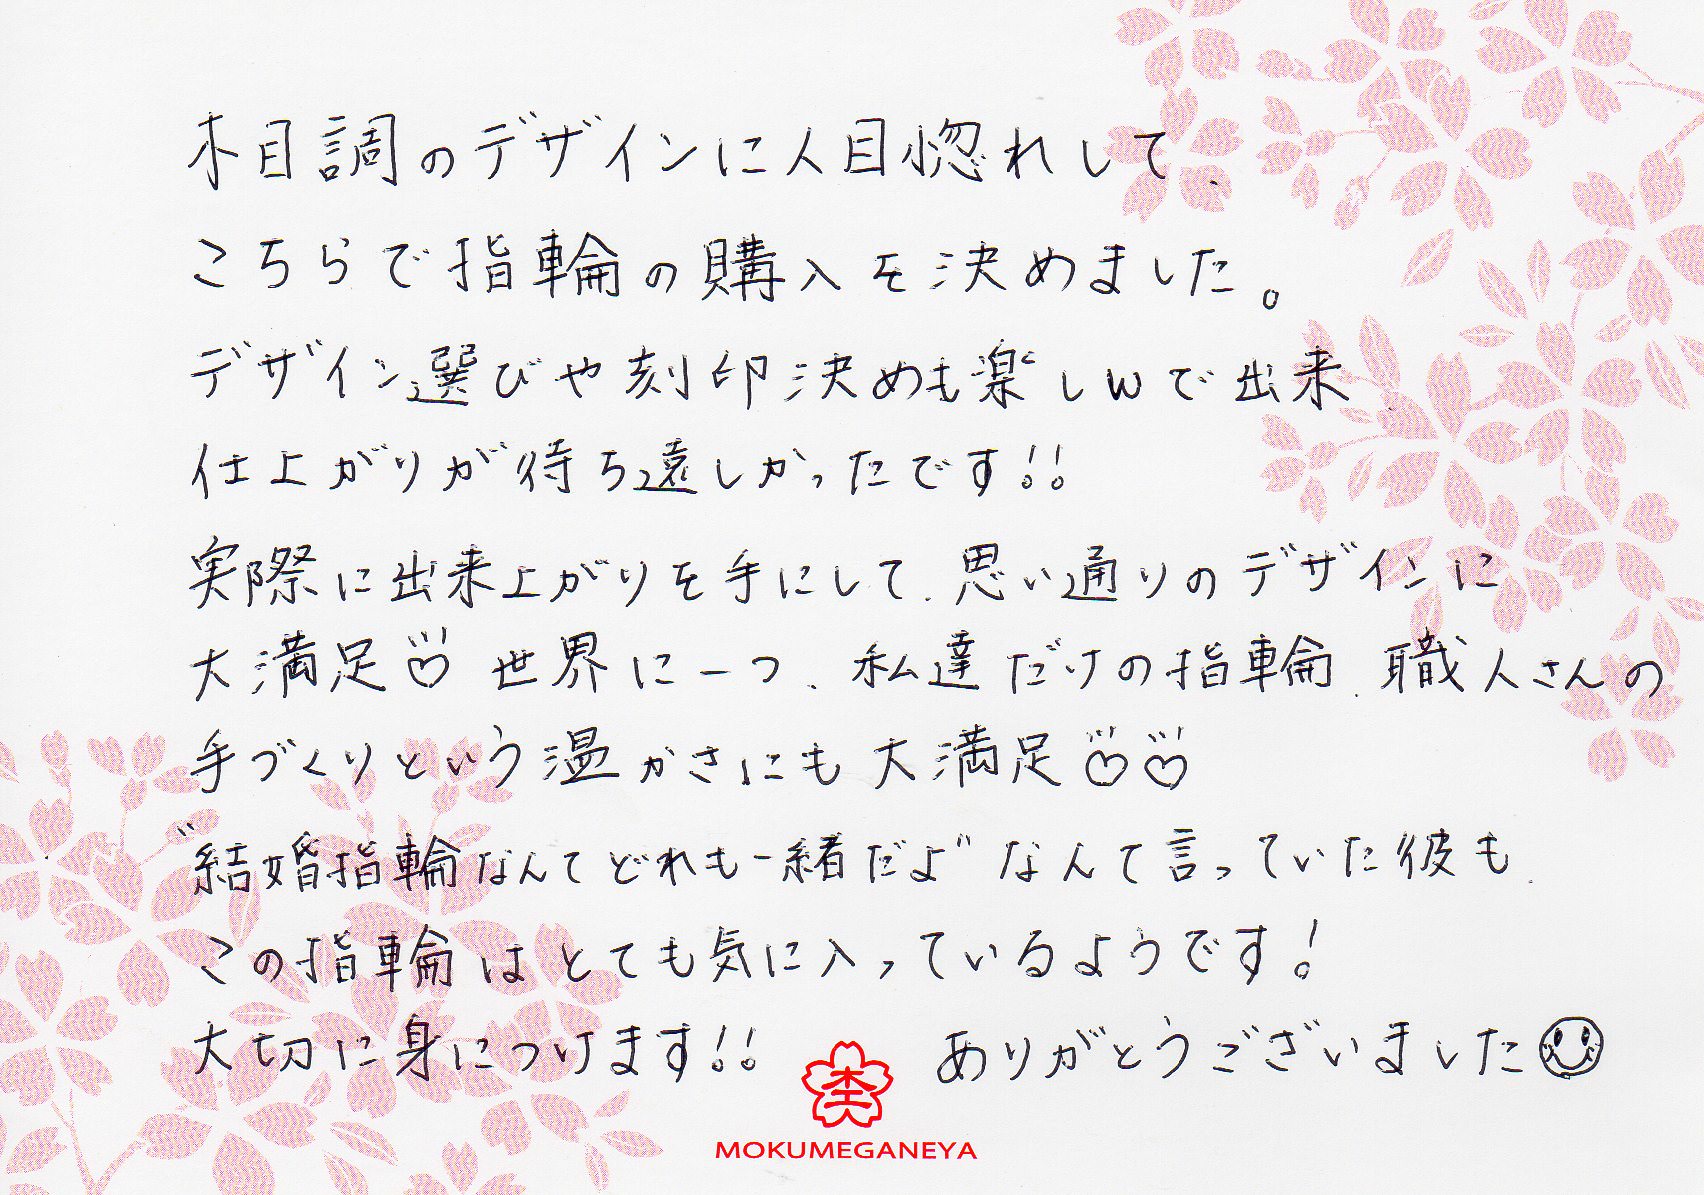 木目調のデザインに人目惚れして、
こちらで指輪の購入を決めました。
デザイン選びや刻印決めも楽しwで出来、
仕上がりが待ち遠しかったです!!
実際に出来上がりを手にして、思い通りのデザインに
大満足♡ 世界に一つ、私達だけの指輪、職人さんの
手づくりという温かさにも大満足♡♡
"結婚指輪なんてどれも一緒だよ"なんて言っていた彼も、
この指輪はとても気に入っているようです!
大切に身につけます!! ありがとうございました☺
MOKUMEGANEYA